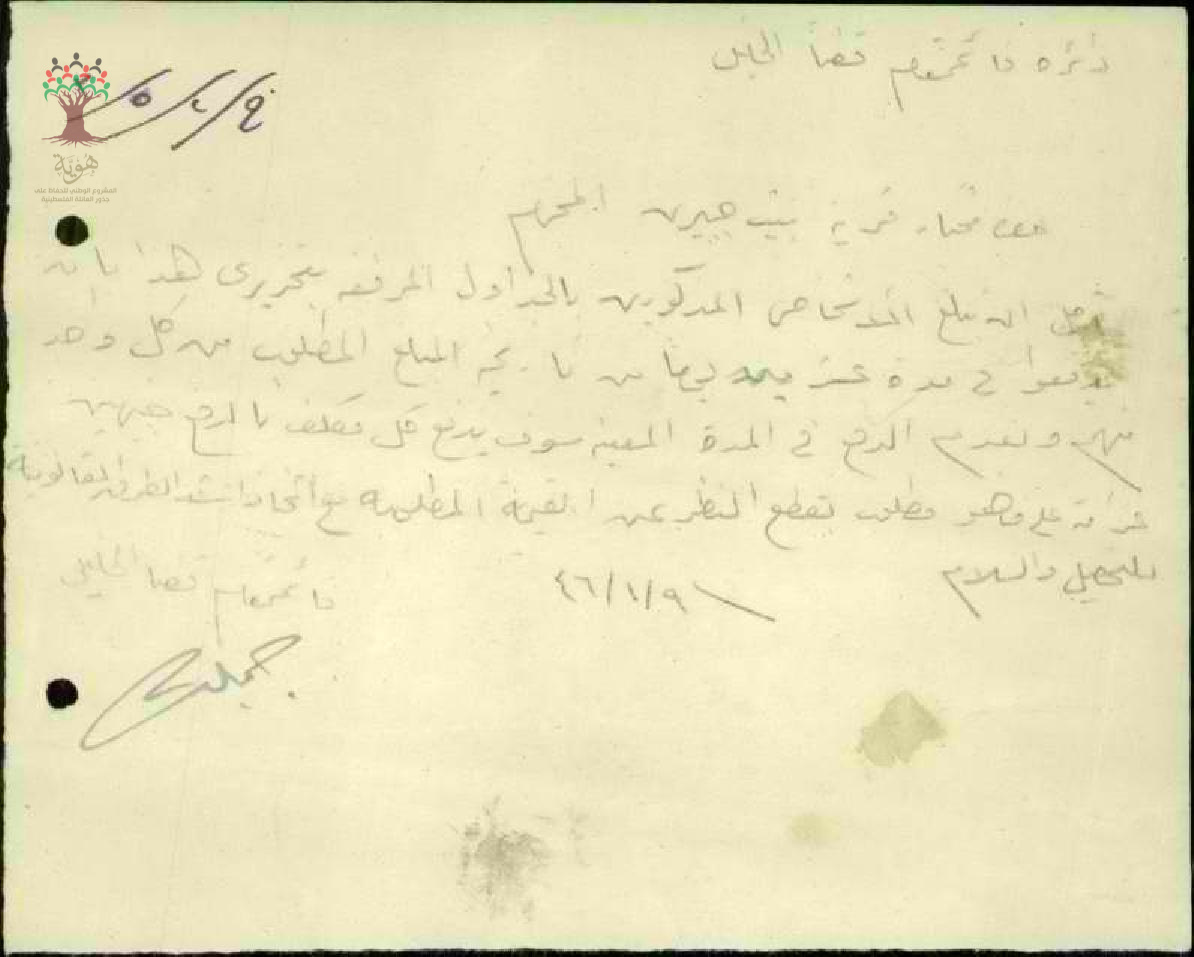 دائرة قائمقام قضا الخليل
هوية
المشروع الوطني للحفاظ على
جذور العائلة الفلسطينية
مختار قرية بيت جبرين المحترم
ان تبلغ الاشخاص المذكورين بالجداول المرفقه بتحريري هذا بان
يدفعوا في مدة عشر يوما من تاريخه المبلغ المطلوب من كل واحد
منهم وبعدم الدفع في المدة المعينه سوف يدفع كل مكلف بالدفع جنيهين
غرامة على ما هو مطلوب بقطع النظر عن القيمة المطلوبه مع اتخاذ اشد الطرق القانونية
للتحصيل والسلام
٤٦/١/٩
قائمقام قضا الخليل